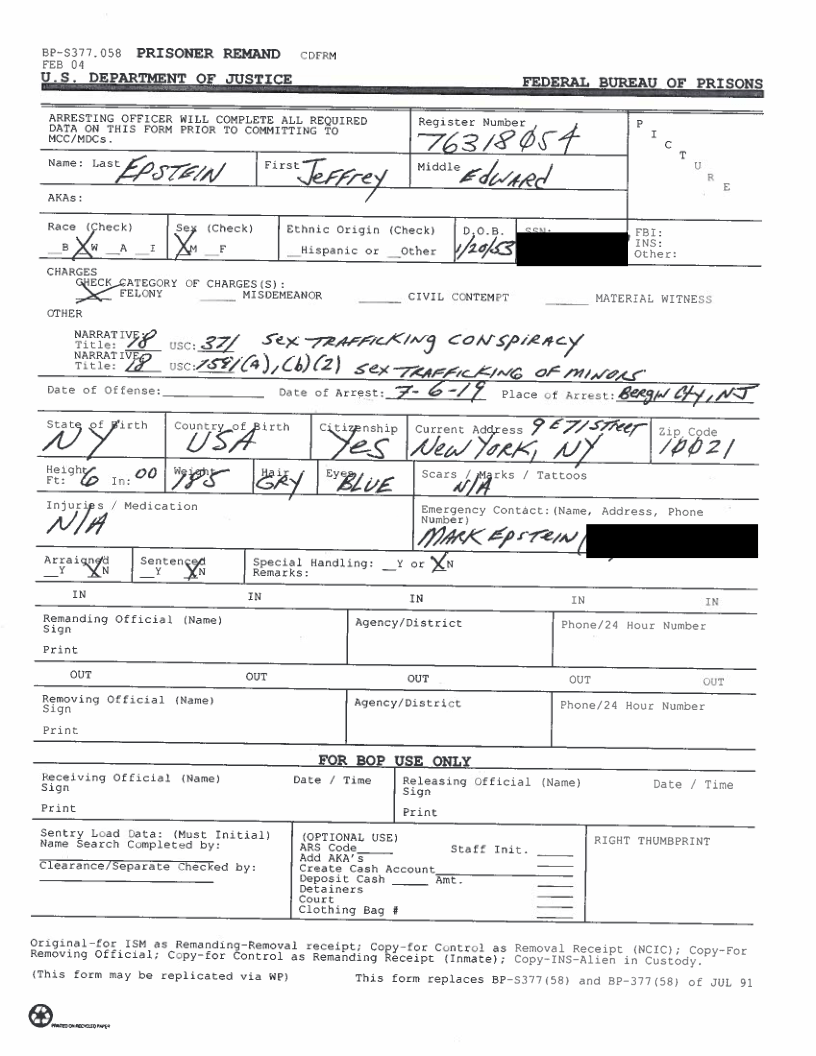 BP-S377.058 PRISONER REMAND CDFRM
FEB 04
U.S. DEPARTMENT OF JUSTICE FEDERAL BUREAU OF PRISONS
ARRESTING OFFICER WILL COMPLETE ALL REQUIRED
DATA ON THIS FORM PRIOR TO COMMITTING TO
MCC/MDCs.
Register Number
76318054
PICTURE
Name: Last EPSTEIN First Jeffrey Middle EdWARd
AKAs:
Race (Check) Sex (Check) Ethnic Origin (Check) D.O.B. SSN: FBI:
__B XW __A __I XM __F __Hispanic or __Other 1/20/53 INS:
Other:
CHARGES
CHECK CATEGORY OF CHARGES(S):
X FELONY _____ MISDEMEANOR _____ CIVIL CONTEMPT _____ MATERIAL WITNESS
OTHER
NARRATIVE:
Title: 18 USC: 371 Sex TRAFFICKINg CONSPIRACY
NARRATIVE
Title: 18 USC: 1591(a),(b)(2) Sex TRAFFICKING OF MINORS
Date of Offense:____________ Date of Arrest: 7-6-19 Place of Arrest: Bergin Cty, NJ
State of Birth Country of Birth Citizenship Current Address 9 E 71 Street Zip Code
NY USA Yes New YORK, NY 10021
Height Weight Hair Eyes Scars / Marks / Tattoos
Ft: 6 In: 00 185 GRY BLUE N/A
Injuries / Medication Emergency Contact:(Name, Address, Phone
Number)
N/A MARK EpSTEIN (
Arraigned Sentenced Special Handling: __Y or XN
__Y XN __Y XN Remarks:
IN IN IN IN IN
Remanding Official (Name) Agency/District Phone/24 Hour Number
Sign
Print
OUT OUT OUT OUT OUT
Removing Official (Name) Agency/District Phone/24 Hour Number
Sign
Print
FOR BOP USE ONLY
Receiving Official (Name) Date / Time Releasing Official (Name) Date / Time
Sign Sign
Print Print
Sentry Load Data: (Must Initial) (OPTIONAL USE) RIGHT THUMBPRINT
Name Search Completed by: ARS Code_____ Staff Init. _____
Add AKA's _____
Clearance/Separate Checked by: Create Cash Account_____
Deposit Cash _____ Amt. _____
Detainers _____
Court _____
Clothing Bag # _____
Original-for ISM as Remanding-Removal receipt; Copy-for Control as Removal Receipt (NCIC); Copy-For
Removing Official; Copy-for Control as Remanding Receipt (Inmate); Copy-INS-Alien in Custody.
(This form may be replicated via WP) This form replaces BP-S377(58) and BP-377(58) of JUL 91
PRINTED ON RECYCLED PAPER